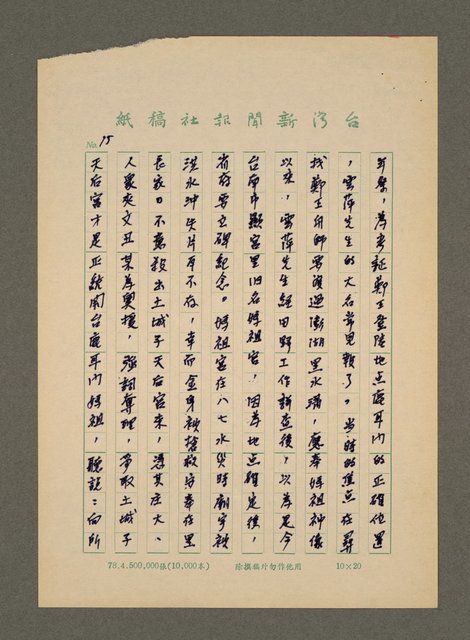 台灣新聞報社稿紙
No. 15
爭聲，為考証鄭王登陸地点鹿耳門的正確位置
，雲萍先生的大名常見報了。当時的焦点在尋
找鄭王舟師要渡過澎湖黑水溝，應奉媽祖神像
以來，雲萍先生經田野工作調查後，以為是今
台南市顯宮里旧名媽祖宮，因為地点確定後，
省府要立碑紀念。媽祖宮在八七水災時廟宇被
洪水沖失片瓦不存，幸而金身被搶救安奉在里
長家。不意殺出土城子天后宮來，憑其庄大、
人眾夾文丑某為奧援，強詞奪理，爭取土城子
天后宮才是正統開台鹿耳門媽祖，聽說：向所
78.4.500,000張(10,000本)
除撰稿外勿作他用
10×20